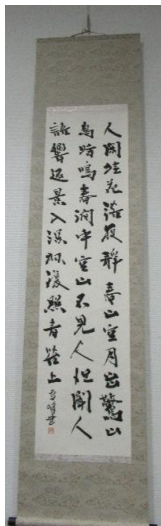 人閑桂花落夜靜春山空月出驚山
鳥時鳴春澗中空山不見人但聞人
語響返景入深林復照青苔上